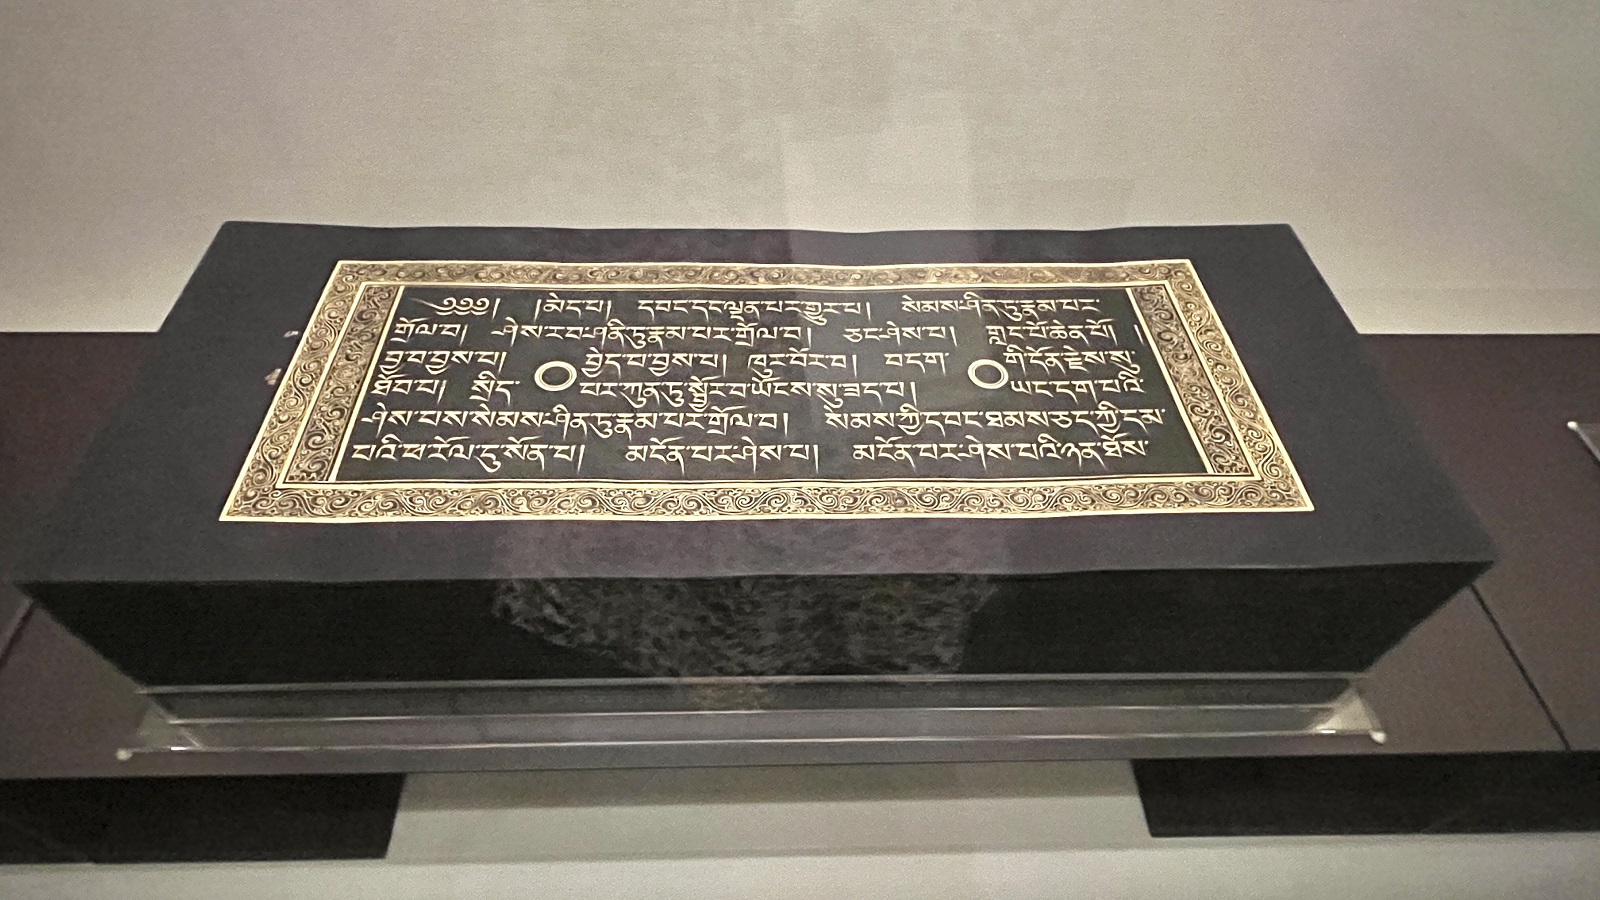 ༄༅༅༅། །མེད་པ། དབང་དང་ལྡན་པར་གྱུར་པ། སེམས་ཤིན་ཏུ་རྣམ་པར་
གྲོལ་བ། ཤེས་རབ་ཤནི་ཏུ་རྣམ་པར་གྲོལ་བ། ཅང་ཤེས་པ། གླང་པོ་ཆེན་པོ། །
བྱ་བ་བྱས་པ། བྱེད་པ་བྱས་པ། ཁུར་བོར་བ། བདག་གི་དོན་རྗེས་སུ་
ཐོབ་པ། སྲིད་པར་ཀུན་ཏུ་སྦྱོར་བ་ཡོངས་སུ་ཟད་པ། ཡང་དག་པའི་
ཤེས་པས་སེམས་ཤིན་ཏུ་རྣམ་པར་གྲོལ་བ། སེམས་ཀྱི་དབང་ཐམས་ཅད་ཀྱི་དམ་
པའི་ཕ་རོལ་དུ་སོན་པ། མངོན་པར་ཤེས་པ། མངོན་པར་ཤེས་པའི་ཉན་ཐོས་